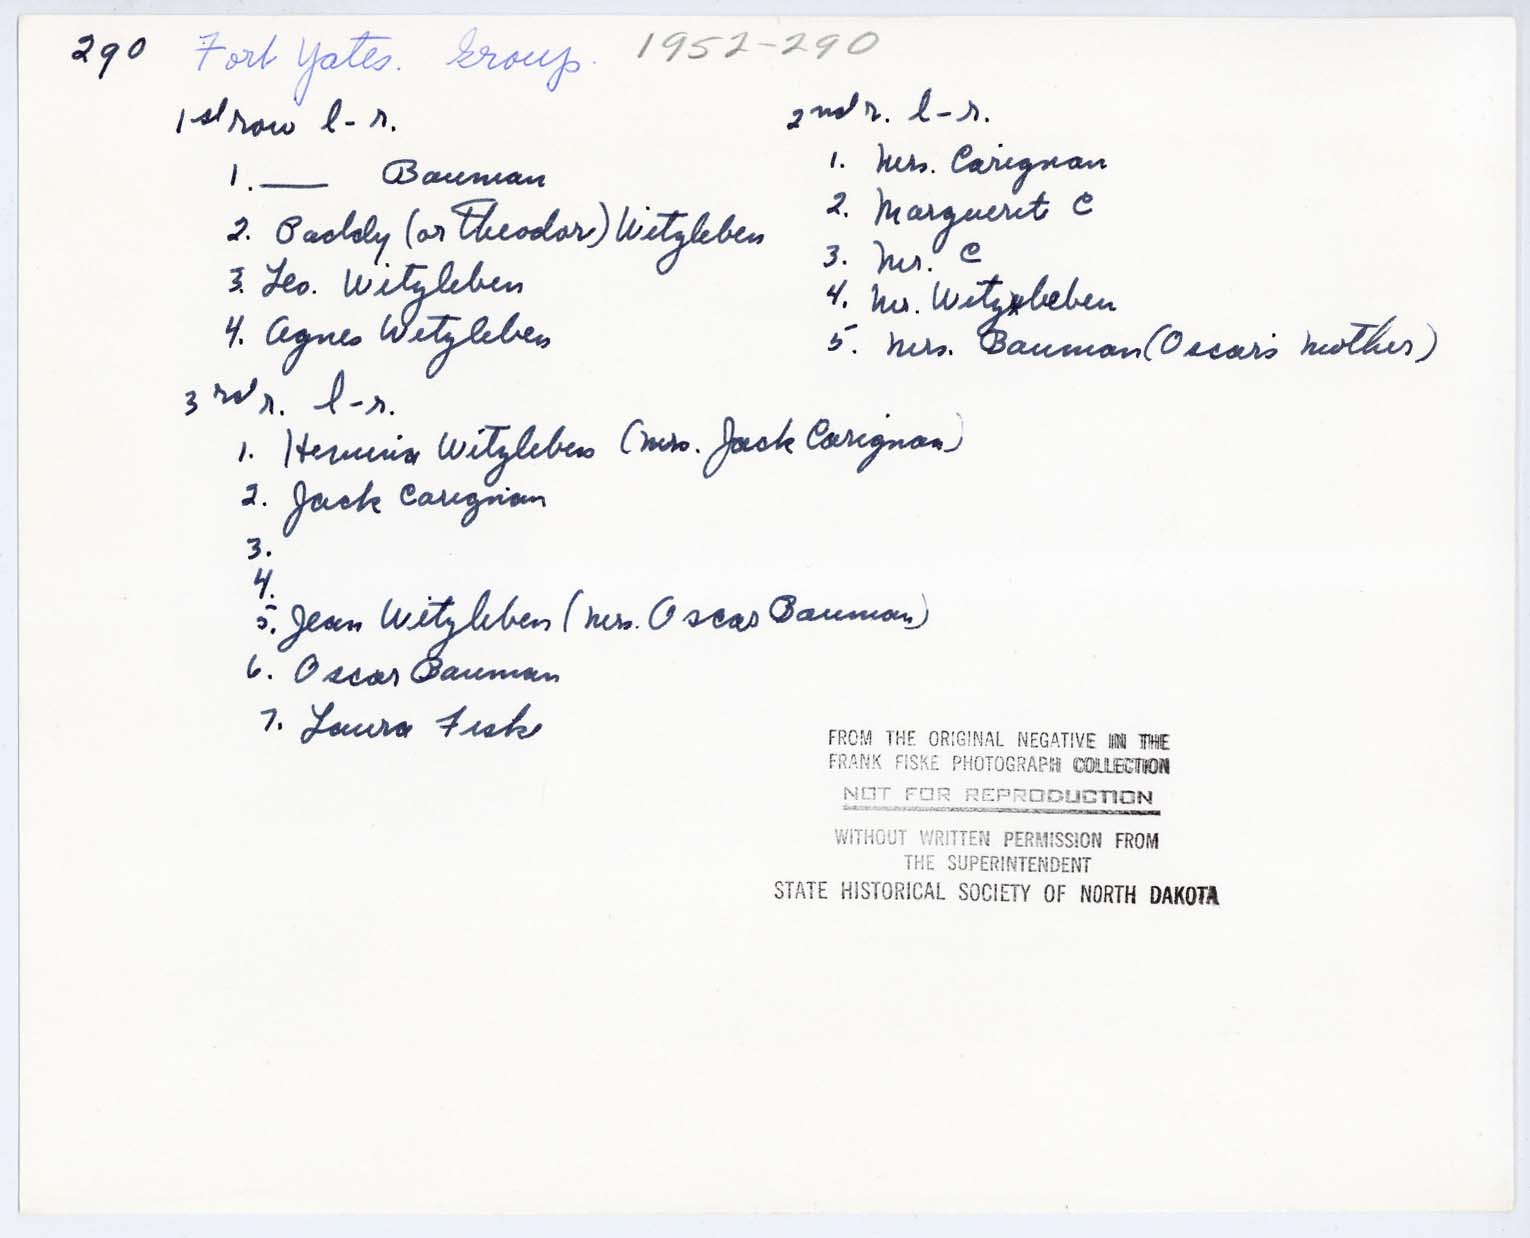 290 Fort Yates. Group. 1952-290
1st row l-r.
1. ___ Bauman
2. Paddy (or Theodor) Witzleben
3. Leo. Witzleben
4. Agnes Witzleben
2nd r. l-r.
1. Mrs. Carignan
2. Marguerit C
3. Mr. C
4. Mr. Witzleben
5. Mrs. Bauman (Oscar's mother)
3rd r. l-r.
1. Hermina Witzleben (Mrs. Jack Carignan)
2. Jack Carignan
3.
4.
5. Jean Witzleben (Mrs. Oscar Bauman)
6. Oscar Bauman
7. Laura Fiske
FROM THE ORIGINAL NEGATIVE IN THE
FRANK FISKE PHOTOGRAPH COLLECTION
NOT FOR REPRODUCTION
WITHOUT WRITTEN PERMISSION FROM
THE SUPERINTENDENT
STATE HISTORICAL SOCIETY OF NORTH DAKOTA